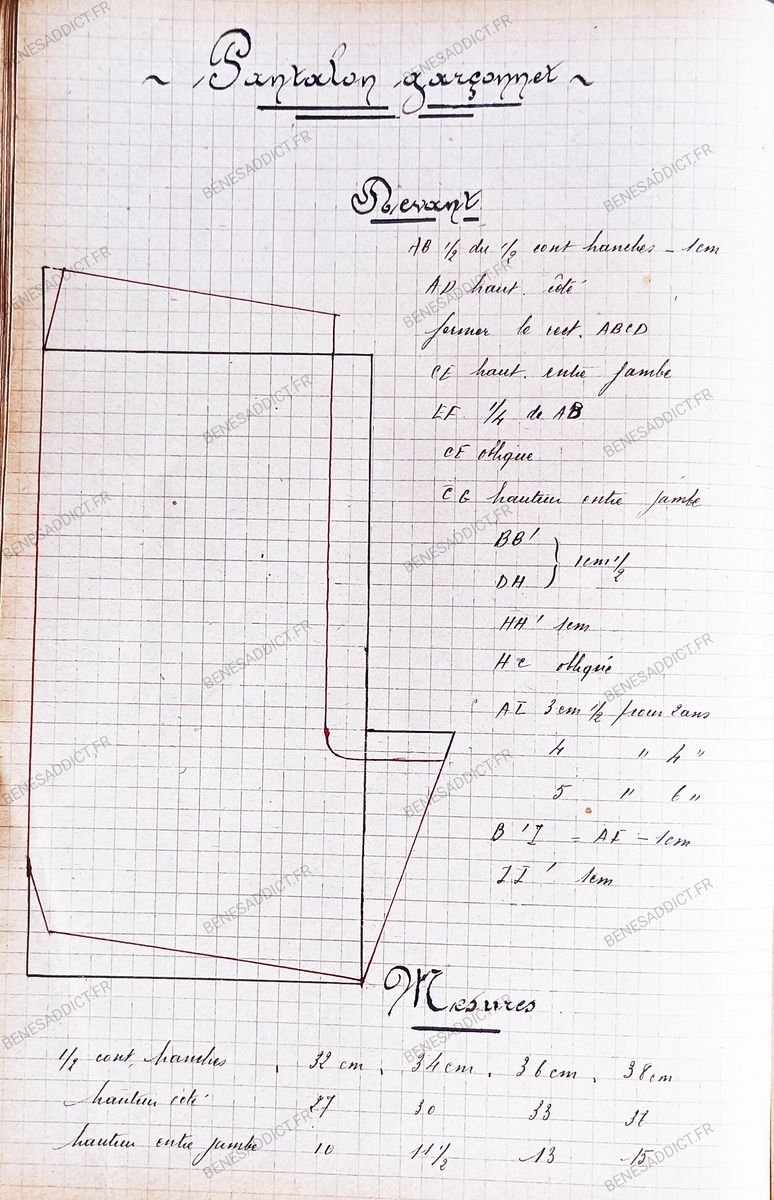 ~ Pantalon garçonnet ~
Devant
AB 1/2 du 1/2 cont hanches - 1cm
AD haut. côté
fermer le rect. ABCD
CE haut. entre jambe
EF 1/4 de AB
CF oblique
CG hauteur entre jambe
BB'
DH } 1cm 1/2
HH' 1cm
HC oblique
AI 3cm 1/2 pour 2ans
4 " 4 "
5 " 6 "
B'I = AE - 1cm
II' 1cm
Mesures
1/2 cont. hanches . 32 cm . 34cm . 36cm . 38cm
hauteur côté 27 30 33
hauteur entre jambe 10 11 1/2 13 15
BENESADDICT.FR